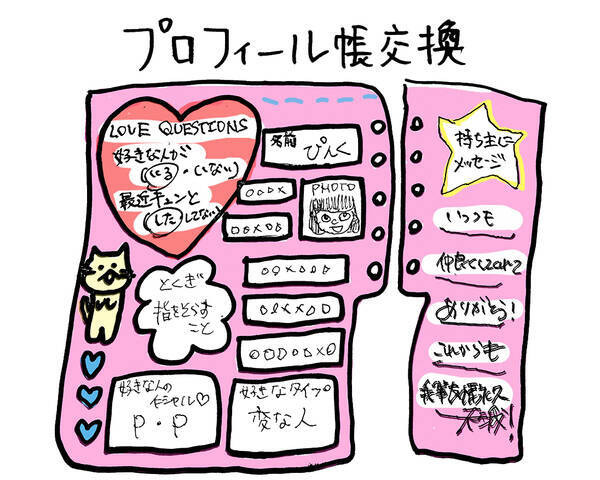 プロフィール帳交換
LOVE QUESTIONS
好きな人が
(いる・いない)
最近キュンと
(した・してない)
名前
ぴんく
○○△×
PHOTO
○×○△
○○×△△
○×△○
○○□○△×○
とくぎ
指をそらす
こと
好きな人の
イニシャル♡
P・P
好きなタイプ
変な人
持ち主に
メッセージ
いつも
仲良くしてくれて
ありがとう!
これからも